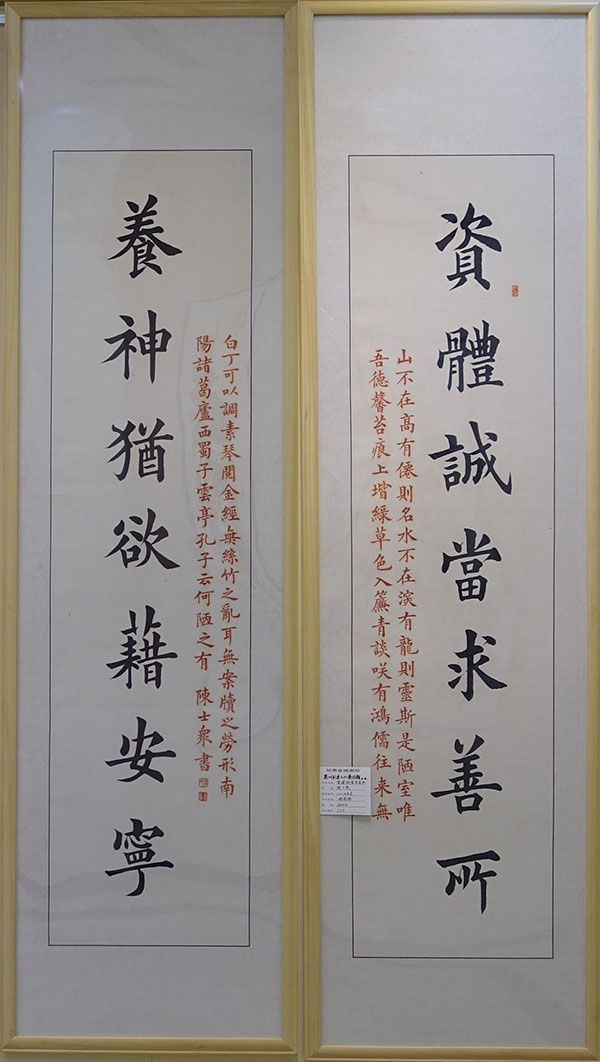 資體誠當求善所
山不在髙有僊則名水不在深有龍則靈斯是陋室唯
吾德馨苔痕上堦綠草色入簾青談咲有鴻儒往来無
養神猶欲藉安寧
白丁可以調素琴閱金經無絲竹之亂耳無案牘之勞形南
陽諸葛廬西蜀子雲亭孔子云何陋之有 陳士衆書